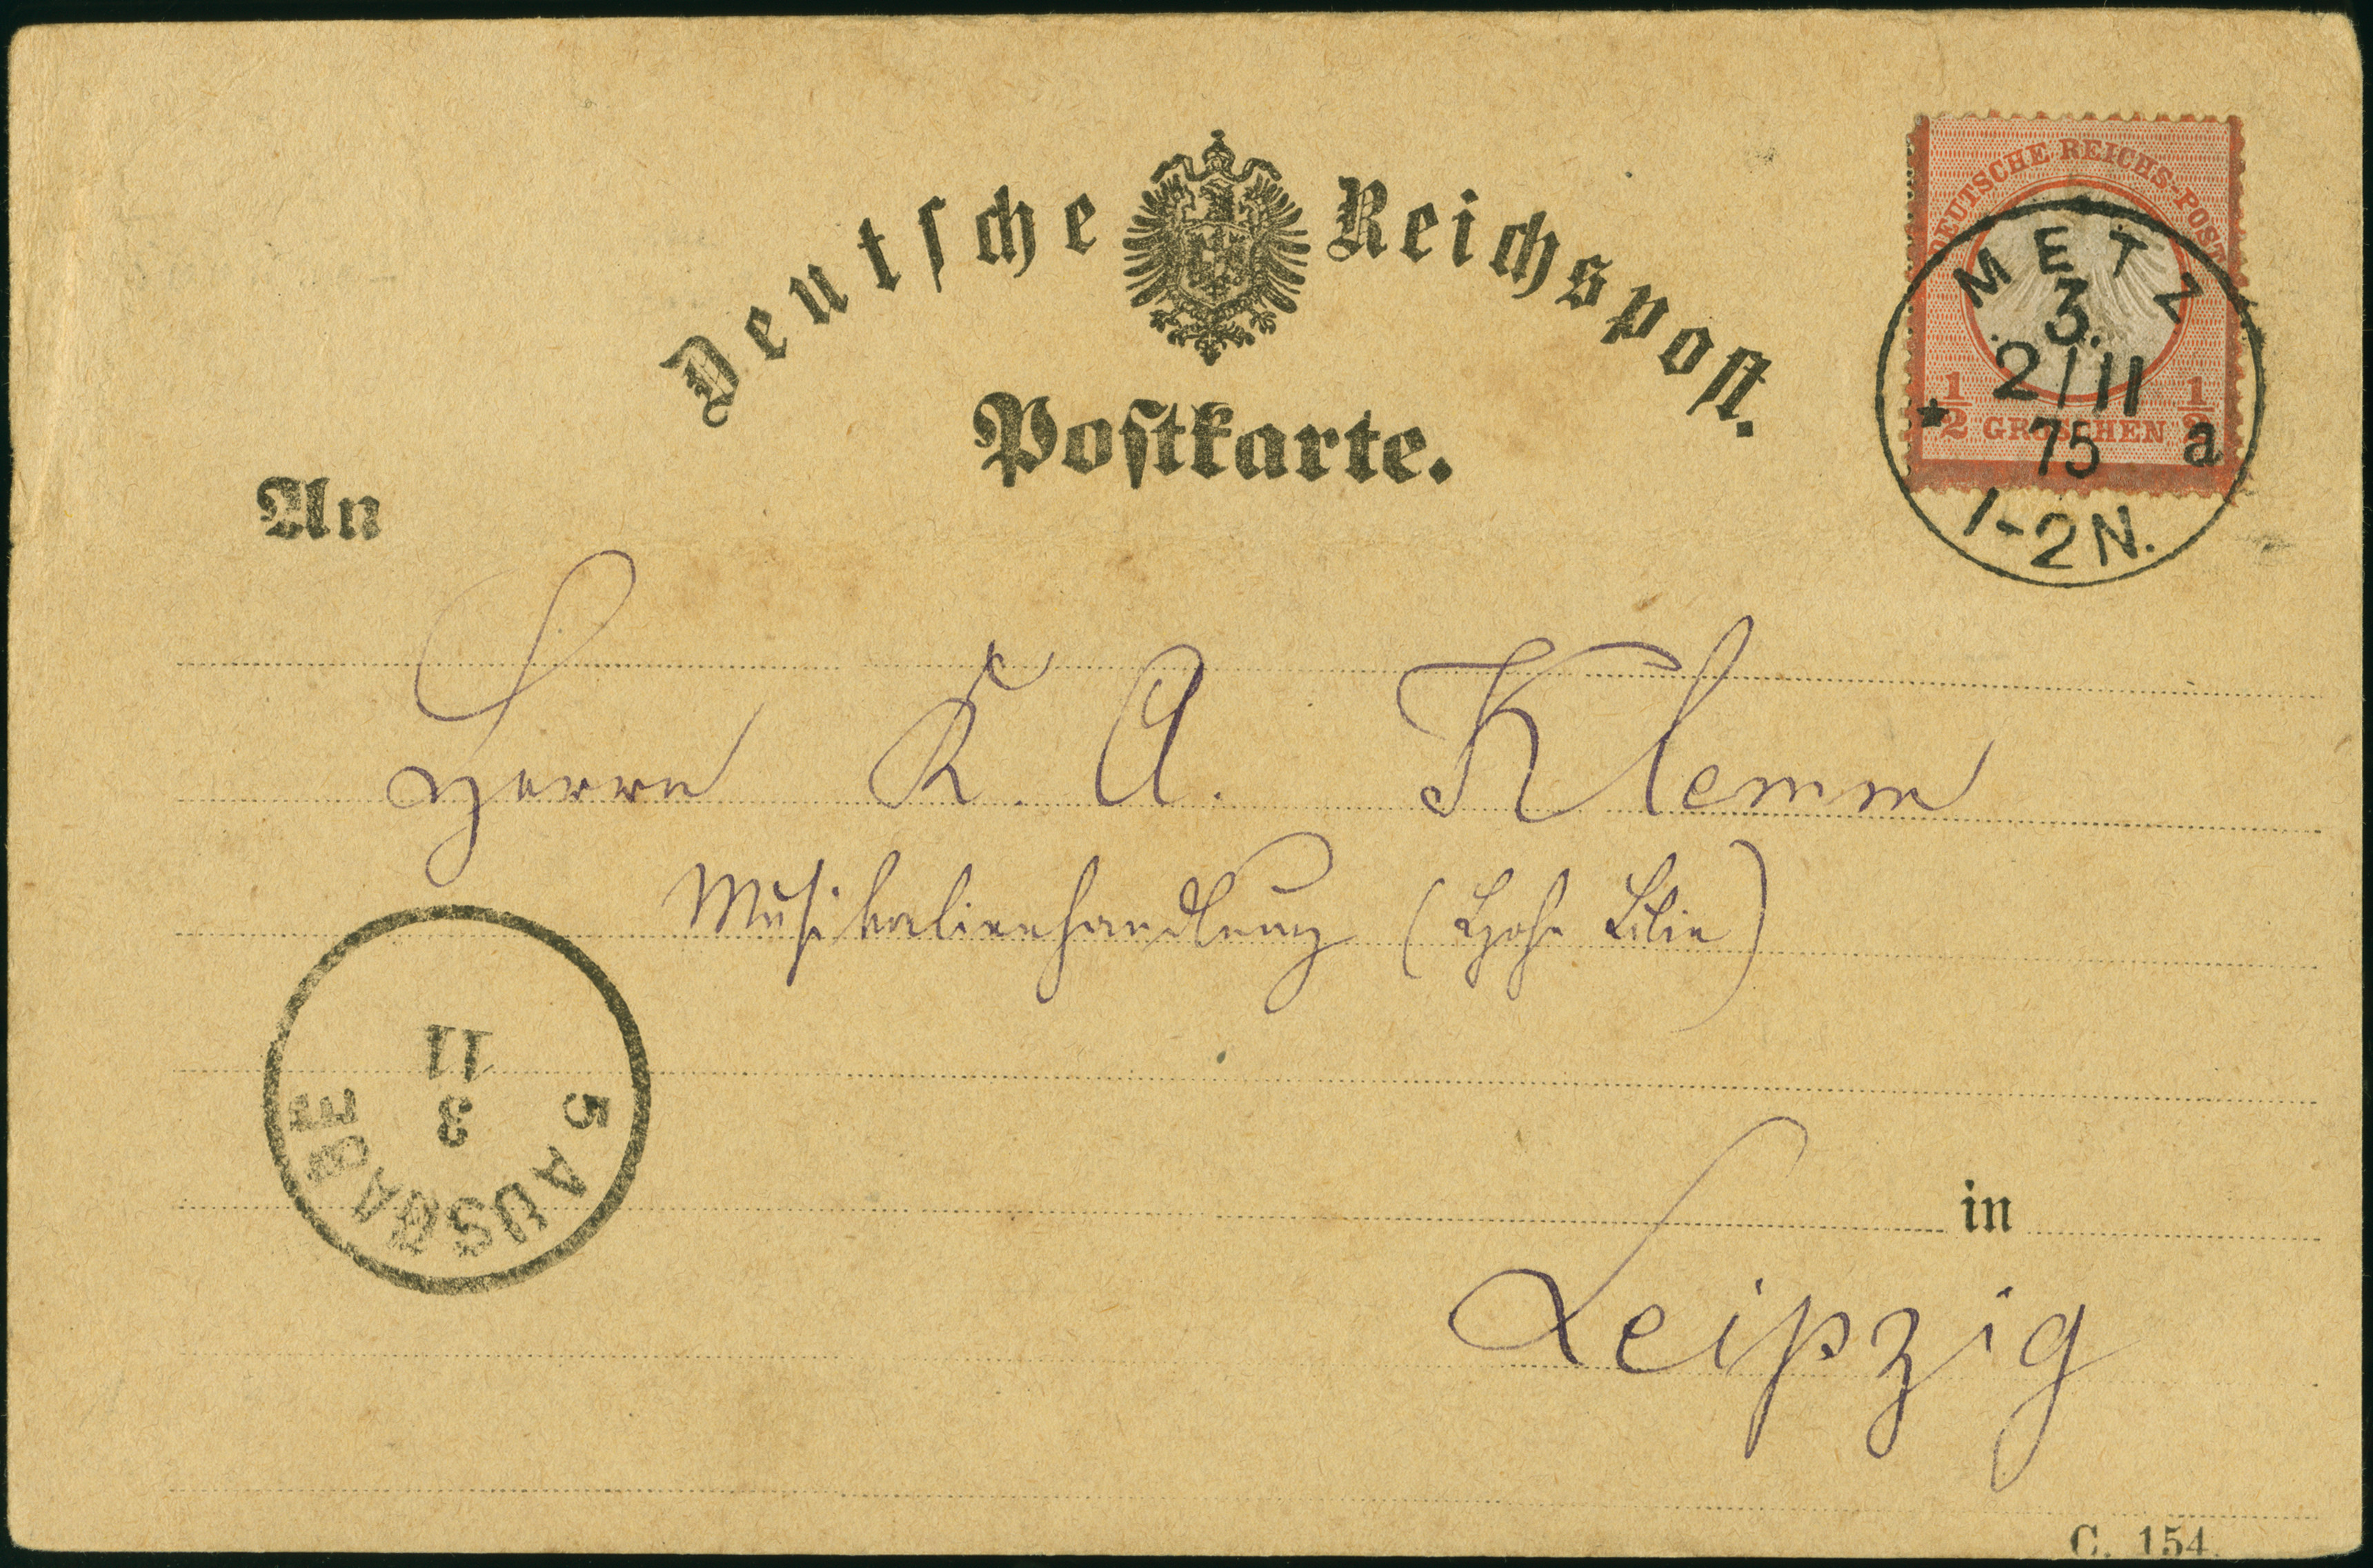 Deutsche Reichspost.
Postkarte.
DEUTSCHE REICHS-POST
1/2 GROSCHEN 1/2
METZ
3.
2/11
75
* a
1-2N.
An
Herrn K. A. Klemm
Musikalienhandlung (Hohe Lilie)
5 AUSGABE
3
11
in
Leipzig
C. 154.